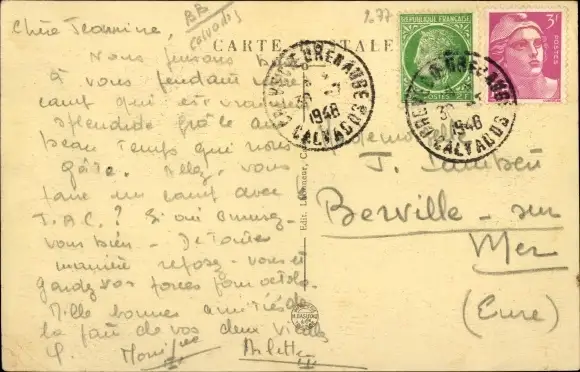 Chère Jeannine,
Nous pensons b
à vous pendant notre
camp qui est vraiment
splendide grâce au
beau temps qui nous
gâte. Allez, vous
faire un camp avec
J.A.C.? Si oui amusez-
vous bien - De toute
manière reposez-vous et
gardez vos forces pour octobre.
Mille bonnes amitiés de
la part de vos deux vieilles
Monique Arlette
BB
Calvados
2.77
CARTE POSTALE
RÉPUBLIQUE FRANÇAISE
POSTES
3F
30
1948
CALVADOS
30
1948
CALVADOS
Edit.
Mademoiselle
J.
Berville-sur
Mer
(Eure)